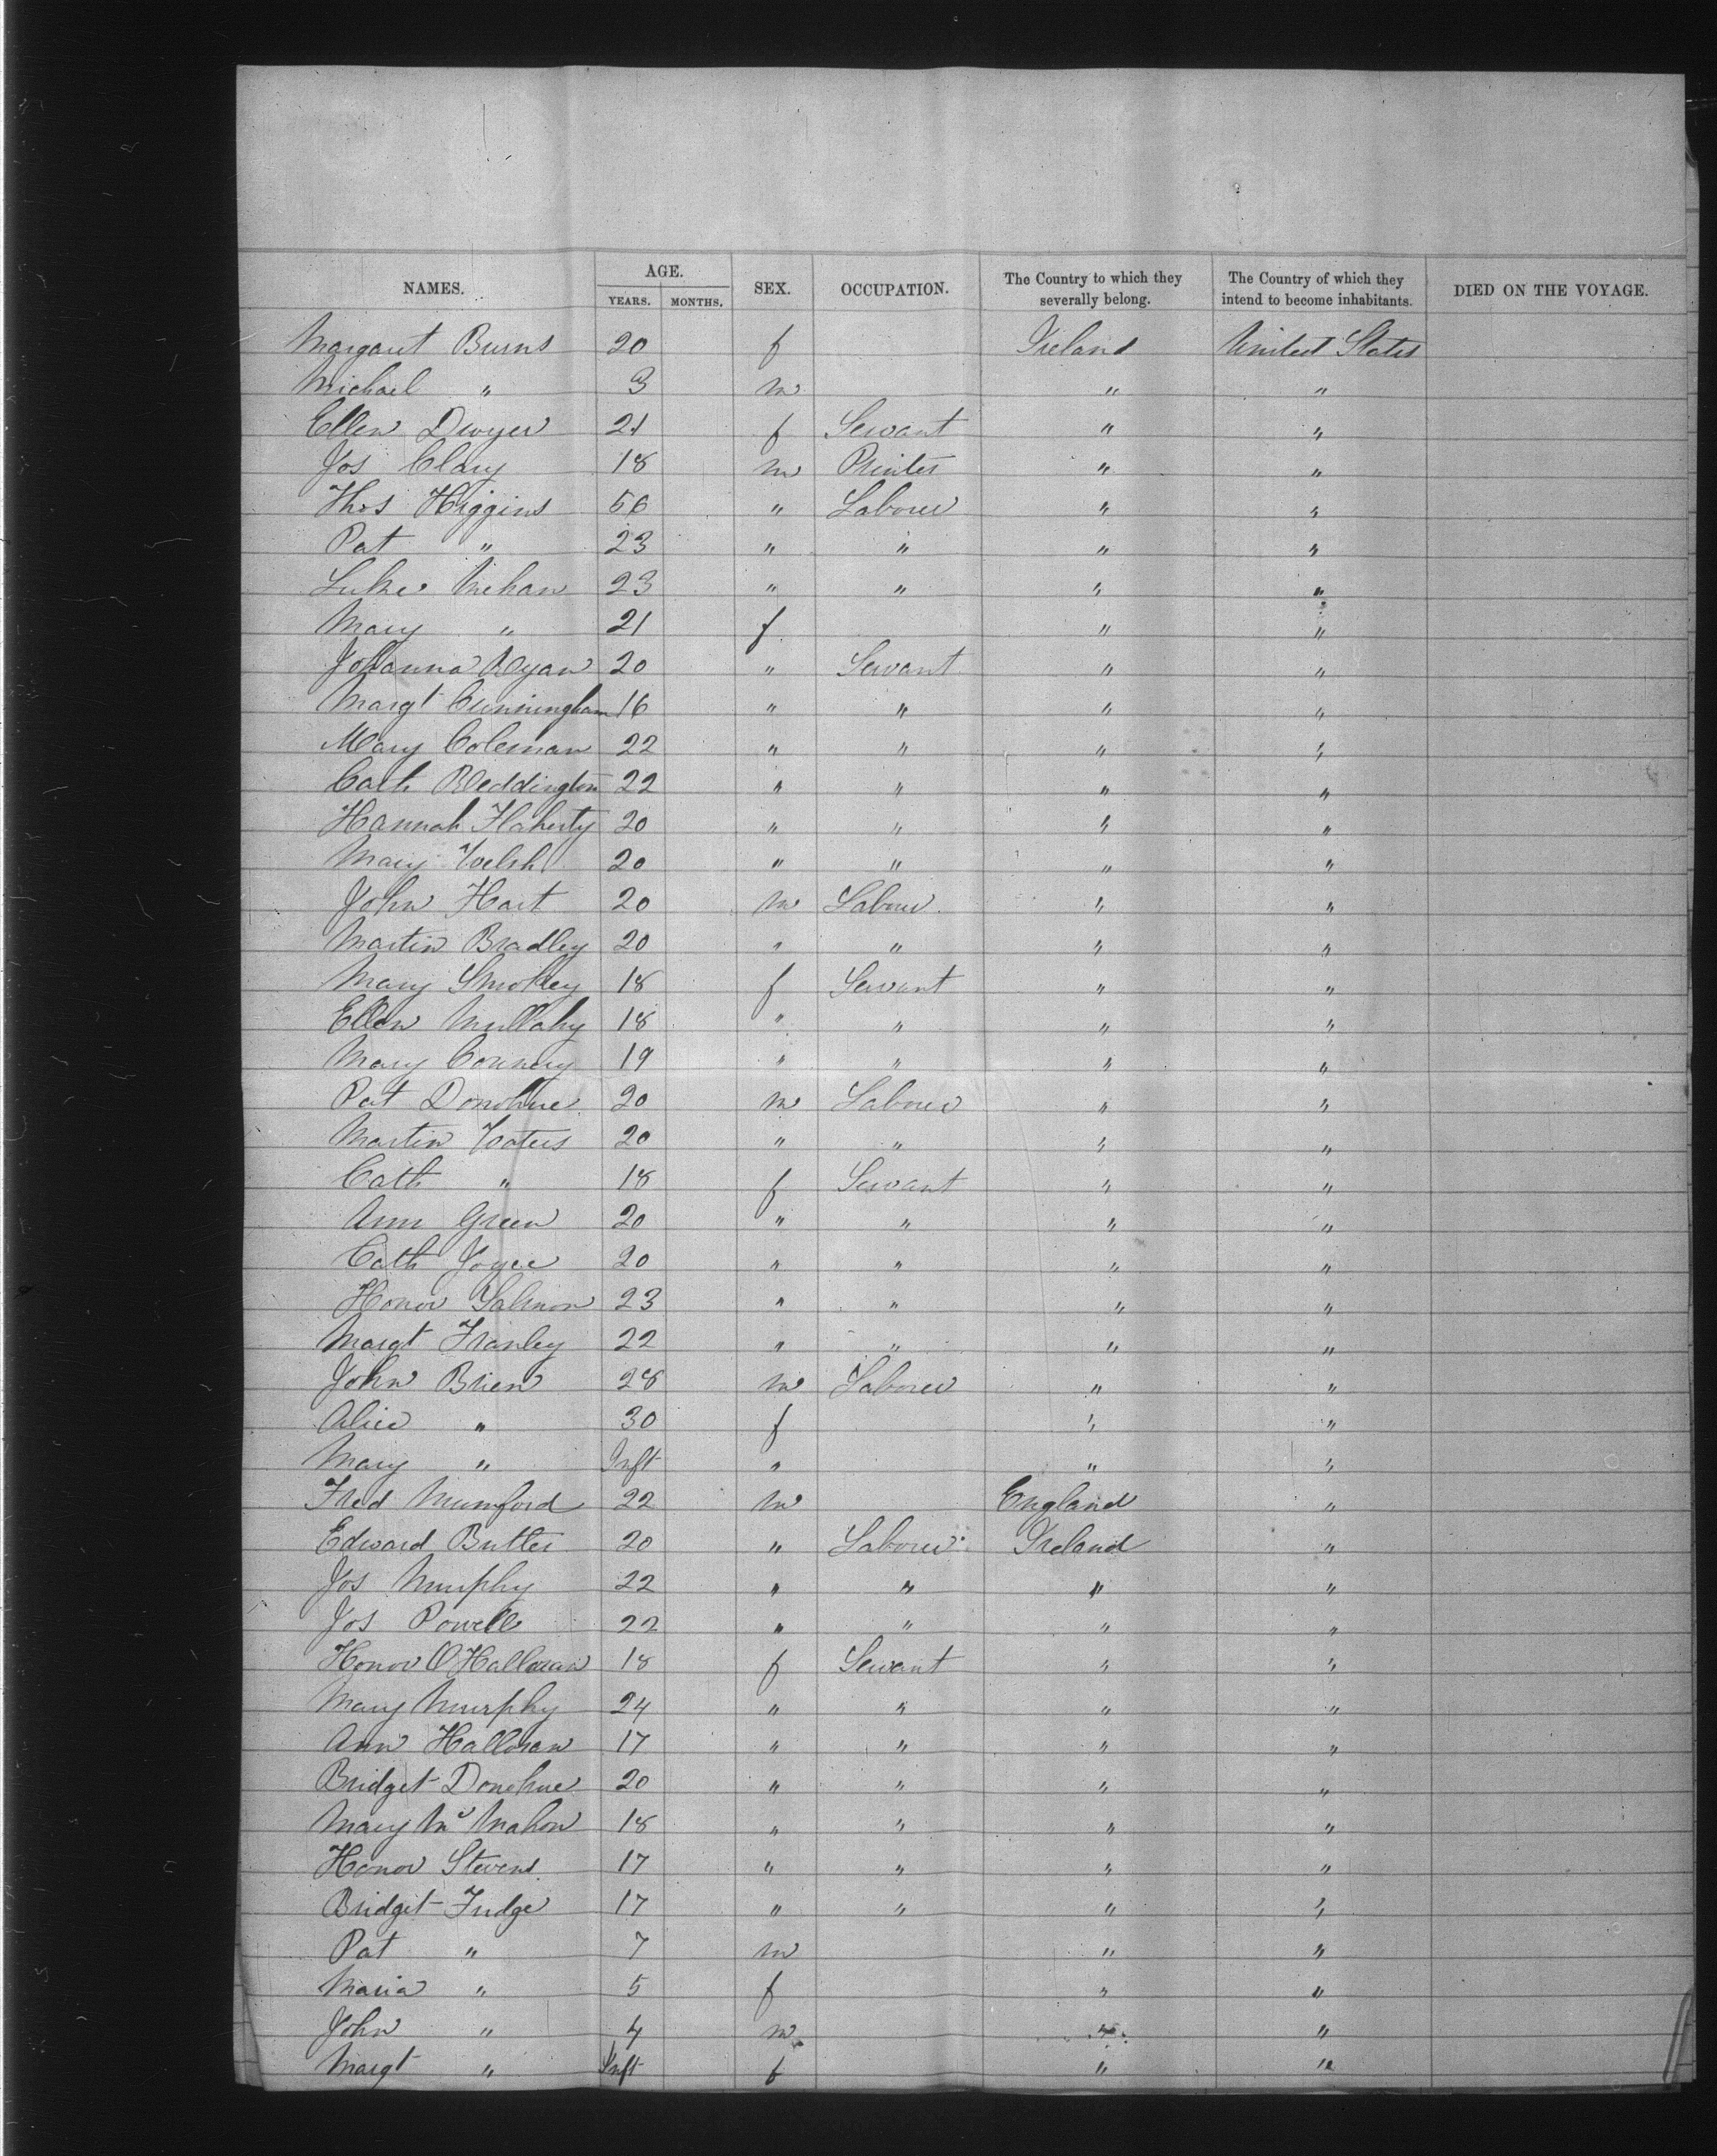 NAMES. AGE. SEX. OCCUPATION. The Country to which they severally belong. The Country of which they intend to become inhabitants. DIED ON THE VOYAGE.
YEARS. MONTHS.
Margaret Burns 20 f Ireland United States
Michael " 3 m " "
Ellen Dwyer 21 f Servant " "
Jos Clary 18 m Printer " "
Thos Higgins 56 " Labourer " "
Pat " 23 " " " "
Luke Mehan 23 " " " "
Mary " 21 f " "
Johanna Ryan 20 " Servant " "
Margt Cunningham 16 " " " "
Mary Coleman 22 " " " "
Cath Reddington 22 " " " "
Hannah Flaherty 20 " " " "
Mary Welsh 20 " " " "
John Hart 20 m Labourer " "
Martin Bradley 20 " " " "
Mary 18 f Servant " "
Ellen Mullahy 18 " " " "
Mary 19 " " " "
Pat Donohue 20 m Labourer " "
Martin Waters 20 " " " "
Cath " 18 f Servant " "
Ann Green 20 " " " "
Cath Joyce 20 " " " "
Honor Salmon 23 " " " "
Margt 22 " " " "
John Brien 28 m Labourer " "
Alice " 30 f " "
Mary " Inft " " "
Fred Mumford 22 m England "
Edward Butler 20 " Labourer Ireland "
Jos Murphy 22 " " " "
Jos Powell 22 " " " "
Honor O'Halloran 18 f Servant " "
Mary Murphy 24 " " " "
Ann Halloran 17 " " " "
Bridget Donohue 20 " " " "
Mary Mc Mahon 18 " " " "
Honor Stevens 17 " " " "
Bridget Judge 17 " " " "
Pat " 7 m " "
Maria " 5 f " "
John " 4 m " "
Margt " Inft f " "